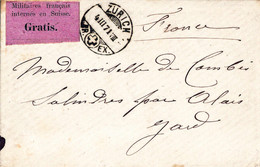 Militaires français
internés en Suisse.
Gratis.
ZÜRICH
4 III 71
EX.
France
Mademoiselle de Combis
Salindres par Alais
Gard